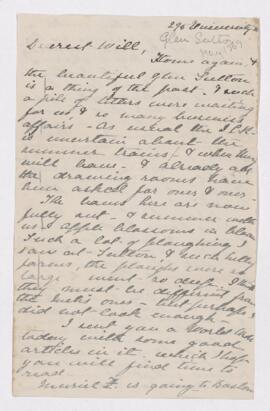 296 University
Glen Sutton
Dearest Will,
Home again, &
the beautiful Glen Sutton
is a thing of the past. Such
a pile of letters were waiting
for us & so many business
affairs. As usual the I.C.R.
is uncertain about the
summer trains & when they
will leave & already all
the drawing rooms have
been asked for ones & ones.
The leaves here are now
fully out & summer with
us apple blossoms in bloom
Such a lot of ploughing I
saw at Sutton & such
the ploughs were so
large & went so deep. I think
they must be different from
the Metis ones - but perhaps I
did not look enough.
I sent you a World's Work
today with some good
articles in it, which I hope
you will find time to
read.
Muriel is going to Boston